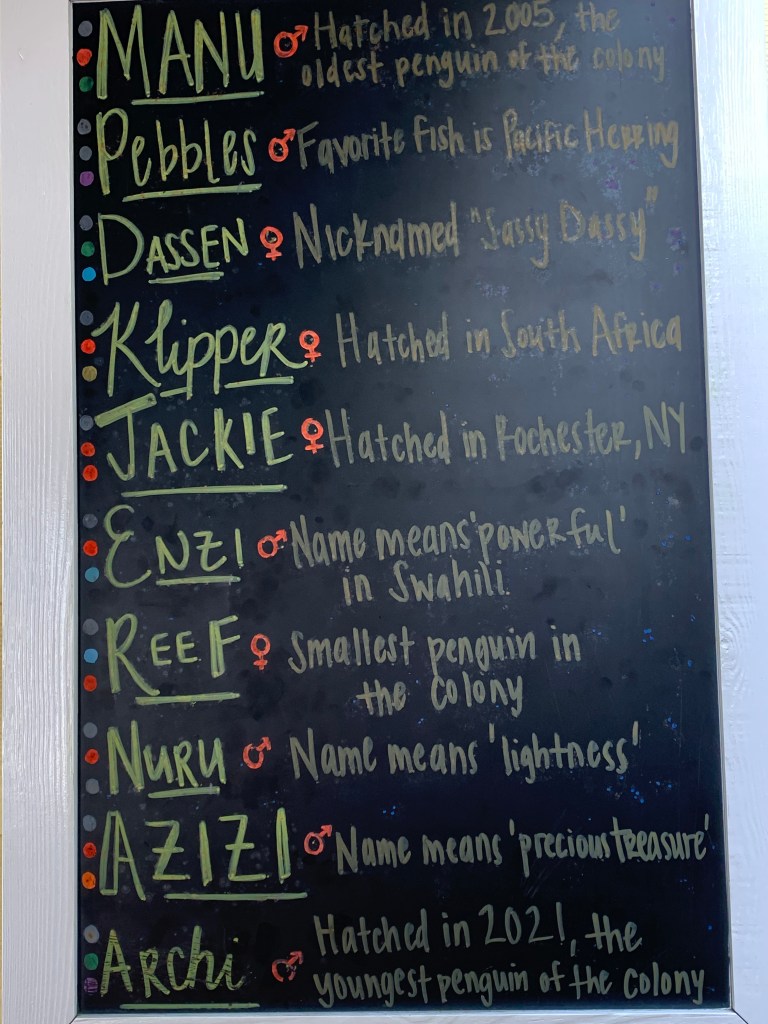 MANU ♂ Hatched in 2005, the
oldest penguin of the colony
Pebbles ♂ Favorite fish is Pacific Herring
DASSEN ♀ Nicknamed "Sassy Dassy"
Klipper ♀ Hatched in South Africa
JACKIE ♀ Hatched in Rochester, NY
ENZI ♂ Name means 'powerful'
in Swahili.
REEF ♀ Smallest penguin in
the colony
NURU ♂ Name means 'lightness'
AZIZI ♂ Name means 'precious treasure'
Archi ♂ Hatched in 2021, the
youngest penguin of the colony